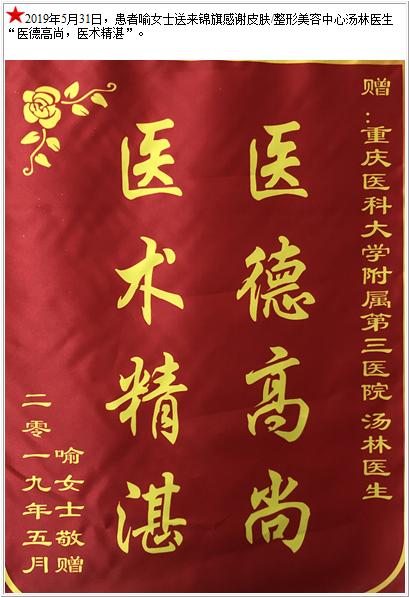 ★2019年5月31日，患者喻女士送来锦旗感谢皮肤/整形美容中心汤林医生
“医德高尚，医术精湛”。
赠：重庆医科大学附属第三医院 汤林医生
医德高尚
医术精湛
喻女士敬赠
二零一九年五月